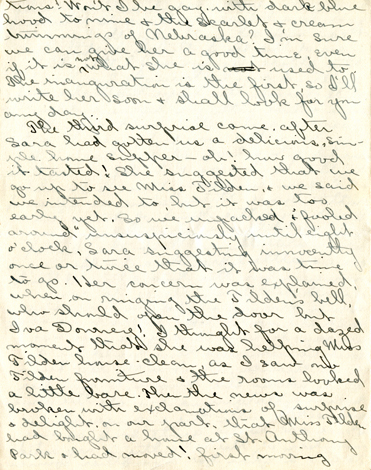 tions! Won't I be gay with dark blue
hood to mine & the scarlet & cream
trimmings of Nebraska? I'm sure
we can give her a good time, even
if it is not what she is used to.
The inauguration is the first, so I'll
write her soon & shall look for you
any day.
The third surprise came after
Sara had gotten us a delicious, sim-
ple home supper - oh! how good
it tasted! She suggested that we
go up to see Miss Tilden, & we said
we intended to, but it was too
early yet. So we unpacked & "fooled
around" unsuspiciously until eight
o'clock, Sara suggesting innocently
once or twice that it was time
to go. Her concern was explained,
when, on ringing the Tilden's bell,
who should open the door but
Iva Downey! I thought for a dazed
moment that she was helping Miss
Tilden house-clean, as I saw no
Tilden furniture & the rooms looked
a little bare. Then the news was
broken with exclamations of surprise
& delight, on our part, that Miss Tilden
had bought a home at St. Anthony
Park & had moved! First moving